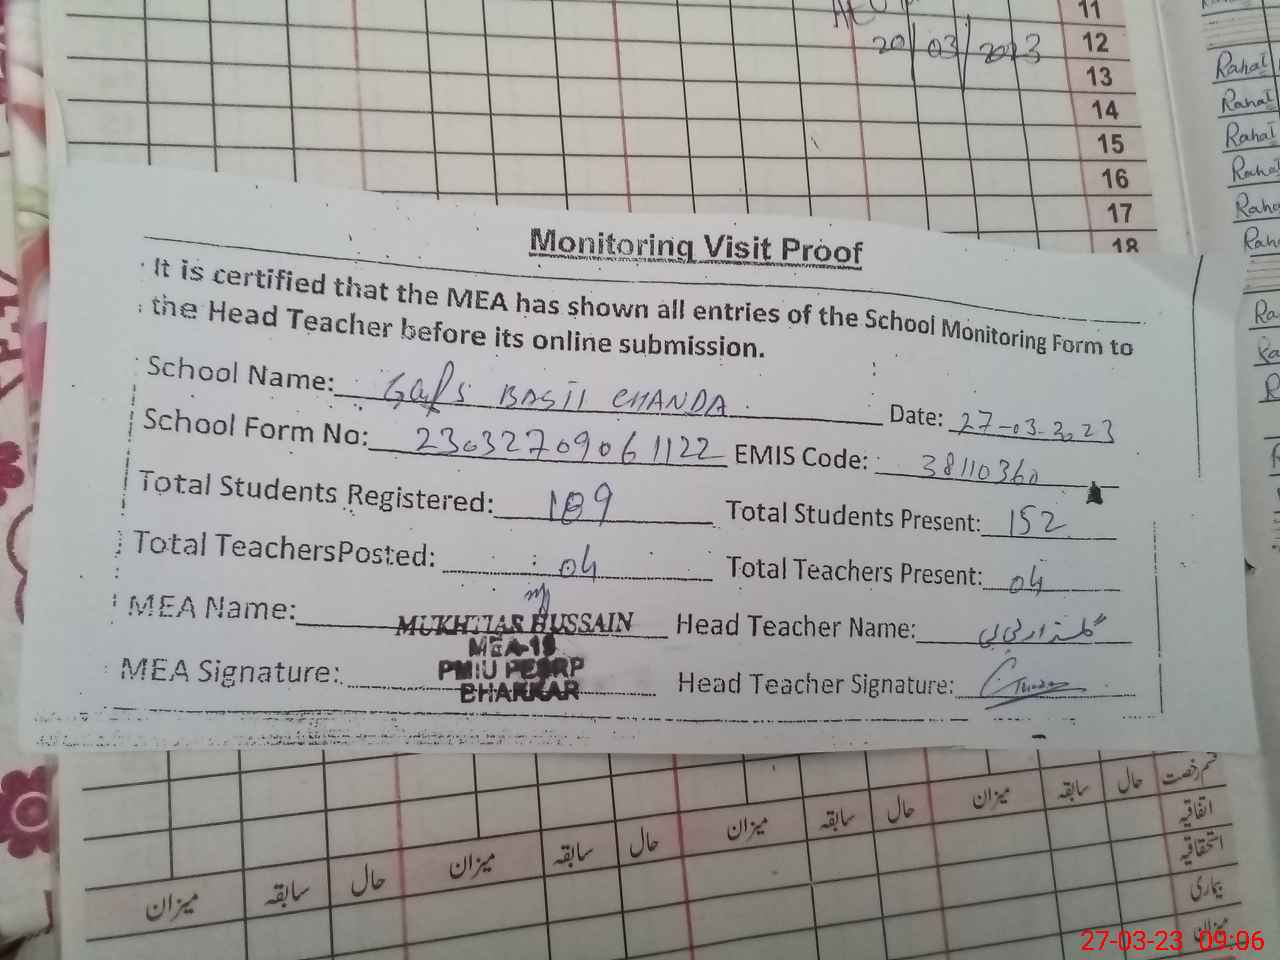 11
20/03/2023 12
13
14
15
16
17
18
Rahat
Rahat
Rahat
Monitoring Visit Proof
It is certified that the MEA has shown all entries of the School Monitoring Form to
the Head Teacher before its online submission.
School Name: BASTI CHANDA Date: 27-03-2023
School Form No: 23032709061122 EMIS Code: 38110360
Total Students Registered: 189 Total Students Present: 152
Total TeachersPosted: 04 Total Teachers Present: 04
MEA Name: MUKHTIAR HUSSAIN Head Teacher Name: گلزار بی بی
MEA-19
MEA Signature: PMIU PESRP Head Teacher Signature:
BHAKKAR
قسم رخصت حال سابقہ میزان حال سابقہ میزان حال سابقہ میزان حال سابقہ میزان
اتفاقیہ
استحقاقیہ
بیماری
میزان
27-03-23 09:06